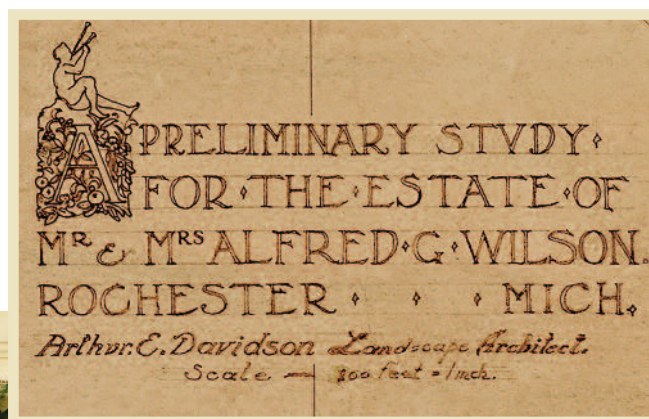 A PRELIMINARY STVDY
FOR · THE · ESTATE · OF
MR & MRS ALFRED · G · WILSON.
ROCHESTER · · · MICH.
Arthur. E. Davidson Landscape Architect.
Scale — 100 feet = 1 inch.